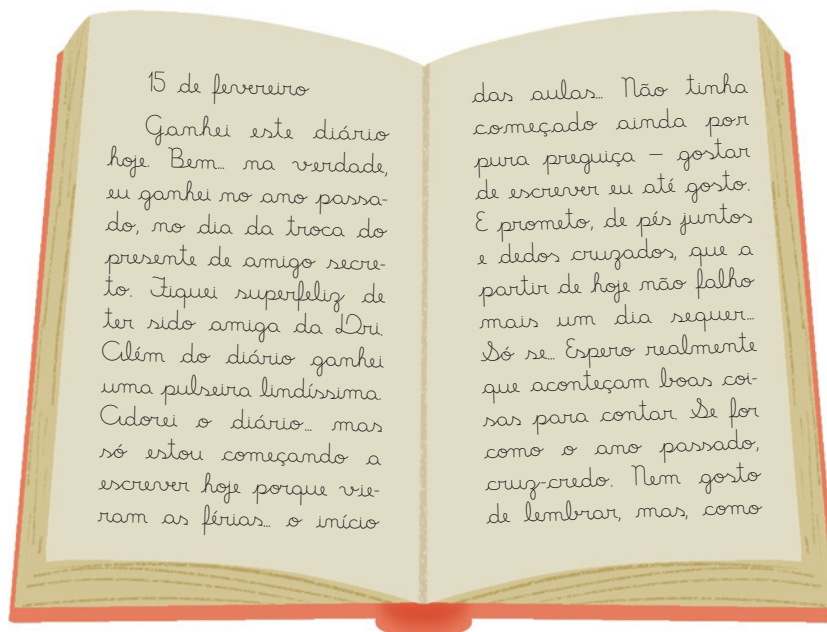 15 de fevereiro
Ganhei este diário
hoje. Bem... na verdade,
eu ganhei no ano passa-
do, no dia da troca do
presente de amigo secre-
to. Fiquei superfeliz de
ter sido amiga da Dri.
Além do diário ganhei
uma pulseira lindíssima.
Adorei o diário... mas
só estou começando a
escrever hoje porque vie-
ram as férias... o início
das aulas... Não tinha
começado ainda por
pura preguiça – gostar
de escrever eu até gosto.
E prometo, de pés juntos
e dedos cruzados, que a
partir de hoje não falho
mais um dia sequer...
Só se... Espero realmente
que aconteçam boas coi-
sas para contar. Se for
como o ano passado,
cruz-credo. Nem gosto
de lembrar, mas, como